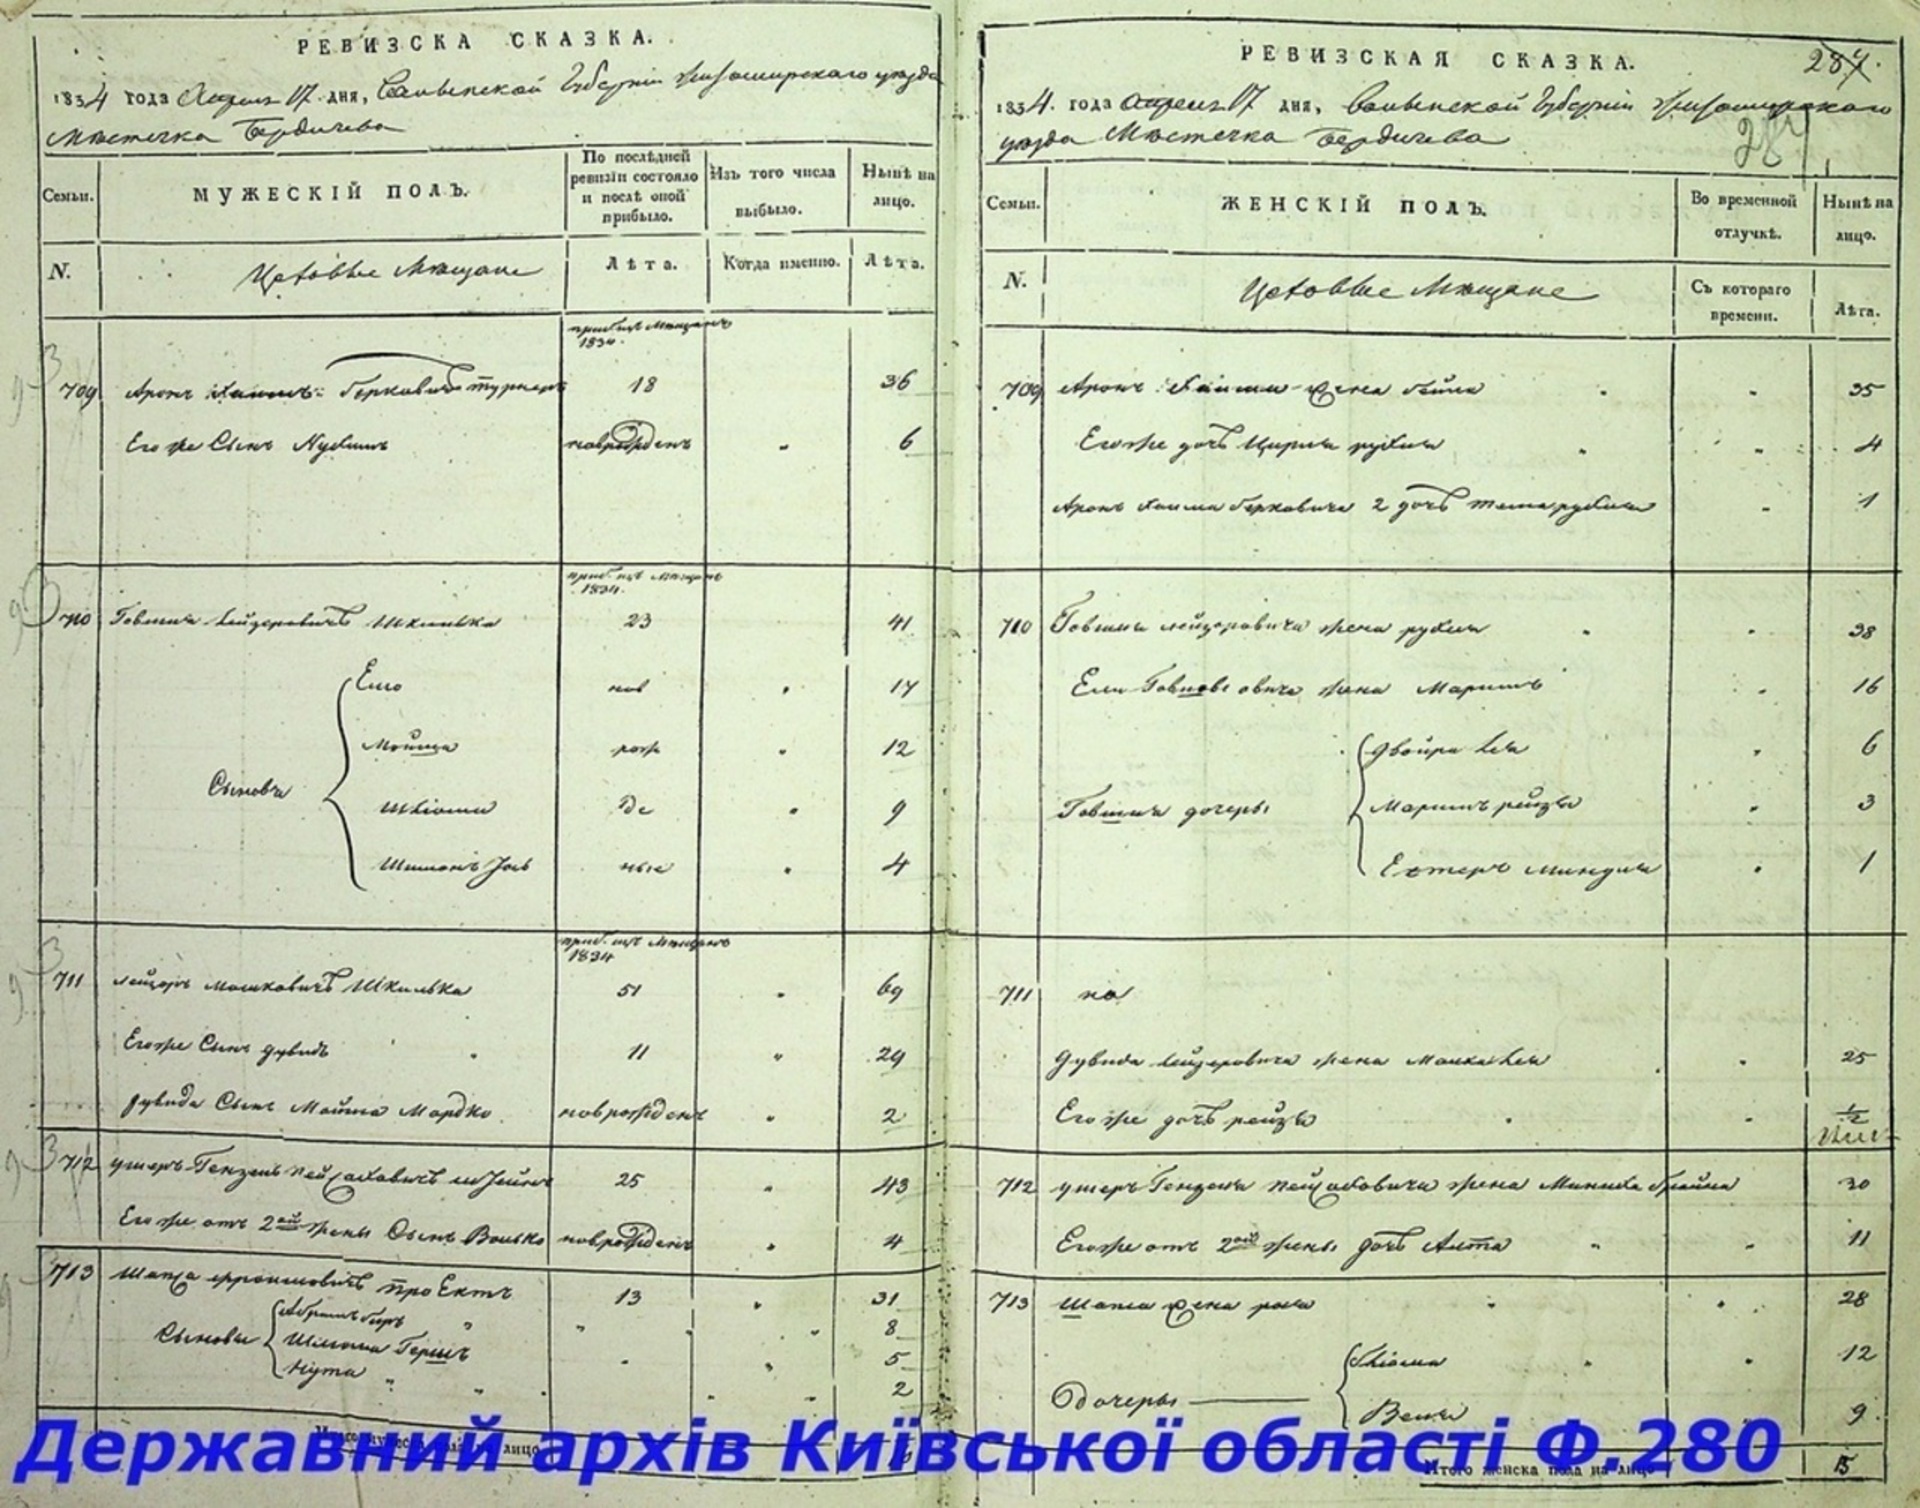 РЕВИЗСКА СКАЗКА.
1834 года Апреля 17 дня, Волынской Губернии Житомирского уезда
Местечка Бердичева
Семьи. МУЖЕСКІЙ ПОЛЪ. По послѣдней ревизіи состояло и послѣ оной прибыло. Изъ того числа выбыло. Нынѣ на лицо.
N. Цеховые Мещане Лѣта. Когда именно. Лѣта.
приб. изъ Мещанъ
1834.
709 Аронъ Хаимъ Герковичъ 18 36
Его же Сынъ новорожденъ 6
приб. изъ Мещанъ
1834.
710 Говшия Лейзеровичъ Шкилька 23 41
Елю нов 17
Мойша рож 12
Сыновья
Шлiома де 9
Шимонъ Iось ные 4
приб. изъ Мещанъ
1834
711 Лейзоръ Мошковичъ Шкилька 51 69
Его же Сынъ Дувидъ 11 29
Дувида Сынъ Мойша Мордко новорожденъ 2
712 Ушеръ Гензель Пейсаховичъ 25 43
Его же отъ 2ой жены Сынъ Волько новорожденъ 4
713 Шапса 13 31
Абрамъ Беръ 8
Сыновья Шлiома Гершъ 5
Нута 2
РЕВИЗСКАЯ СКАЗКА.
287.
1834. года Апреля 17 дня, Волынской Губернии Житомирского
уезда Местечка Бердичева
Семьи. ЖЕНСКІЙ ПОЛЪ. Во временной отлучкѣ. Нынѣ на лицо.
N. Цеховые Мещане Съ котораго времени. Лѣта.
709 Аронъ Хаима жена Бейла 35
Его же дочь Цирля Рухля 4
Аронъ Хаима Герковича 2 дочь 1
710 Говшии Лейзеровича жена Рухля 38
Ели Говшовича жена Маримъ 16
Двойра Лея 6
Говшия дочери Маримъ Рейзя 3
Естеръ Миндля 1
711 на
Дувида Лейзеровича жена Малка Лея 25
Его же дочь Рейзя 1/2
712 Ушеръ Гензеля Пейсаховича жена 30
Его же отъ 2ой жены дочь 11
713 Шапса жена 28
12
Дочеры
9
Итого женска пола на лицо 15
Державний архів Київської області Ф.280